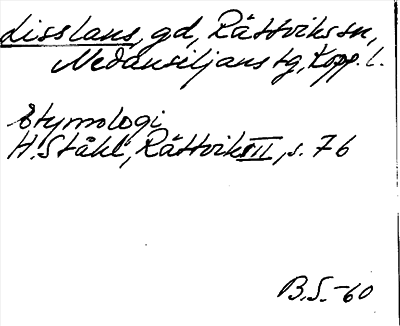 Lisslans, gd, Rättviks sn,
Nedansiljans tg, Kopp. l.
Etymologi
H. Ståhl, Rättvik III, s. 76
B.S. -60